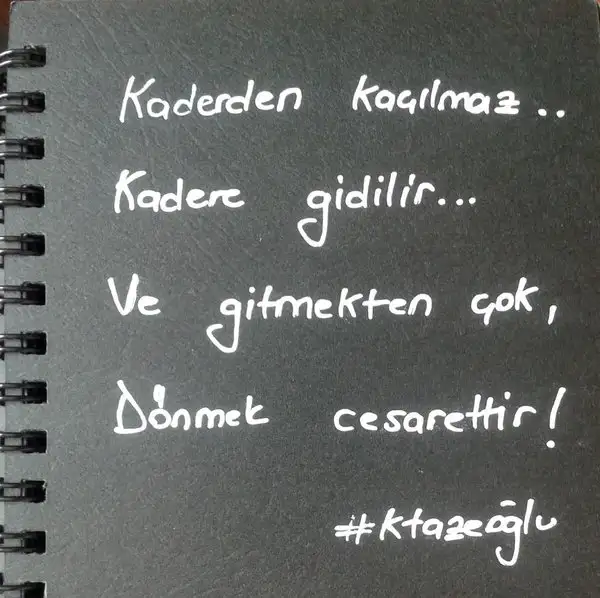 Kaderden kaçılmaz..
Kadere gidilir...
Ve gitmekten çok,
Dönmek cesarettir!
#ktazeoğlu